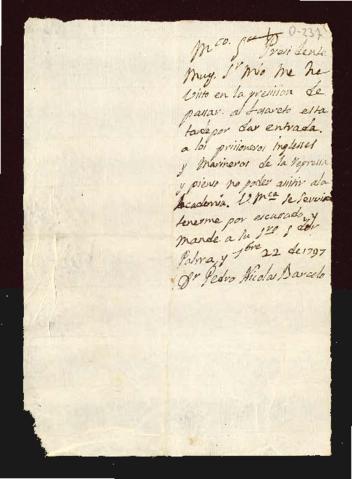 D-237
M.co Sor Presidente
Muy Sr mio me he
visto en la presision de
passar al Lasareto esta
tarde por dar entrada
a los prisioneros Inglesses
y Marineros de la Repressa
y pienso no poder asistir a la
Academia. Vmca se servira
tenerme por escusado, y
mande a su Sro S dor
Palma, y 7bre 22 de 1797
Dr Pedro Nicolas Barcelo